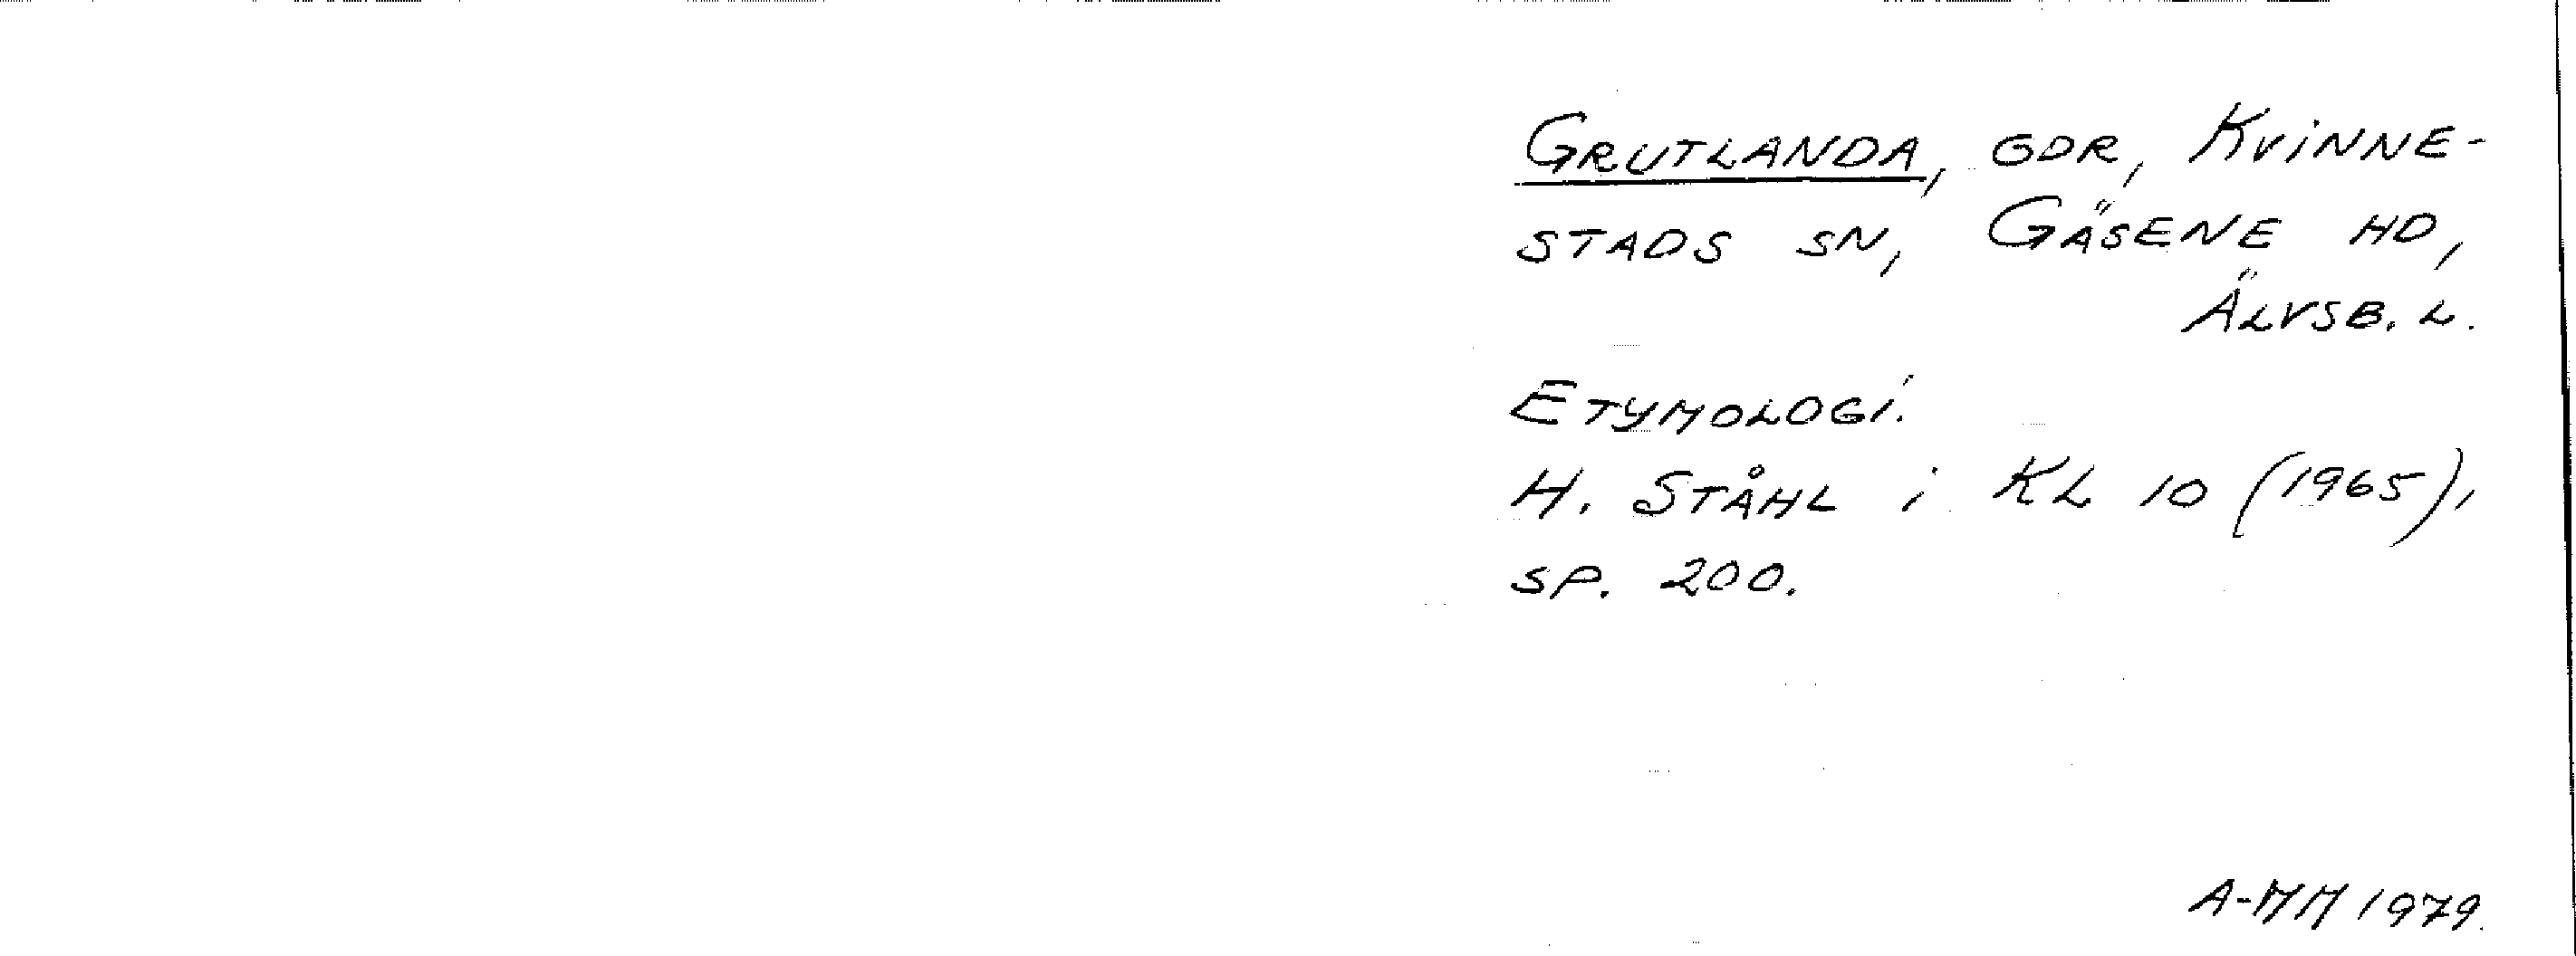 GRUTLANDA, GDR, KVINNE-
STADS SN, GÄSENE HD,
ÄLVSB. L.
ETYMOLOGI.
H. STÅHL i KL 10 (1965),
SP. 200.
A-MM 1979.